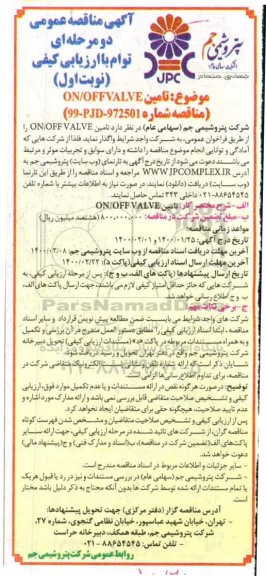 آگهی مناقصه عمومی
دو مرحله ای
توام با ارزیابی کیفی
(نوبت اول)
پتروشیمی جم
JPC
موضوع: تامین ON/OFF VALVE
(مناقصه شماره 99-PJD-972501)
شرکت پتروشیمی جم (سهامی عام) در نظر دارد تامین ON/OFF VALVE را
از طریق فراخوان عمومی، به شرکت واجد شرایط واگذار نماید. لذا از شرکت هایی که
آمادگی و توانایی انجام موضوع مناقصه را داشته و دارای سوابق و تجربیات موثر و مرتبط
می باشند دعوت می شود از تاریخ درج آگهی به تارنمای (وب سایت) پتروشیمی جم به
آدرس WWW.JPCOMPLEX.IR مراجعه و اسناد مناقصه را از طریق این تارنما
(وب سایت) دریافت (دانلود) نمایند. در صورت نیاز به اطلاعات بیشتر با شماره تلفن
۸۸۶۵۴۵۴۵-۰۲۱ داخلی ۳۴۳ تماس حاصل نمایند.
الف - شرح مختصر کار: تامین ON/OFF VALVE
ب - مبلغ تضمین شرکت در مناقصه: ۸۰۰،۰۰۰،۰۰۰ (هشتصد میلیون ریال)
مواعد زمانی مناقصه:
تاریخ درج آگهی: ۱۴۰۰/۰۱/۲۵ و ۱۴۰۰/۰۲/۰۱
آخرین مهلت دریافت اسناد مناقصه از وب سایت پتروشیمی جم: ۱۴۰۰/۰۲/۰۸
آخرین مهلت ارسال اسناد ارزیابی کیفی (پاکت ه): ۱۴۰۰/۰۲/۲۲
تاریخ ارسال پیشنهادها (پاکت های الف، ب و ج): پس از مرحله ارزیابی کیفی، به
شرکت هایی که حائز حداقل امتیاز کیفی لازم می باشند، جهت ارسال پاکت های الف،
ب و ج اطلاع رسانی خواهد شد.
ج - برخی نکات مهم:
شرکت های واجد شرایط می بایست ضمن مطالعه پیش نویس قرارداد و سایر اسناد
مناقصه، ابتدا اسناد ارزیابی کیفی را مطابق دستور العمل مندرج در آن بررسی و تکمیل
و به همراه سایر مستندات مربوطه در پاکت «ه» (مستندات ارزیابی کیفی) تحویل دبیرخانه
شرکت پتروشیمی جم واقع در دفتر تهران تحویل و رسید دریافت شود.
توضیح: در صورت هرگونه نقص در ارائه مستندات و یا عدم تکمیل موارد فوق، ارزیابی
کیفی و تشخیص صلاحیت متقاضی قابل بررسی نمی باشد و ارائه مدارک مورد اشاره و
عدم تایید صلاحیت، هیچگونه حقی برای متقاضیان ایجاد نخواهد کرد.
پس از ارزیابی کیفی و تشخیص صلاحیت متقاضیان و مشخص شدن فهرست کوتاه
مناقصه گران، از شرکت های تایید شده در مرحله ارزیابی کیفی، جهت ارائه سایر
پاکت های الف (تضمین شرکت در مناقصه)، ب (اسناد و مدارک فنی) و ج (پیشنهاد مالی)
دعوت خواهد شد.
- سایر جزئیات و اطلاعات مربوط در اسناد مناقصه مندرج است.
- شرکت پتروشیمی جم (سهامی عام) در بررسی مستندات و نیز در رد یا قبول هر یک
یا تمام مستندات ارائه شده توسط شرکت ها بدون آنکه محتاج به ذکر دلیل باشد مختار
است.
آدرس مناقصه گزار (دفتر مرکزی) جهت تحویل پیشنهادها:
- تهران، خیابان شهید عباسپور، خیابان نظامی گنجوی، شماره ۲۷،
شرکت پتروشیمی جم، طبقه همکف، دبیرخانه حراست
- تلفن تماس: ۸۸۶۵۴۵۴۵ - ۰۲۱
روابط عمومی شرکت پتروشیمی جم